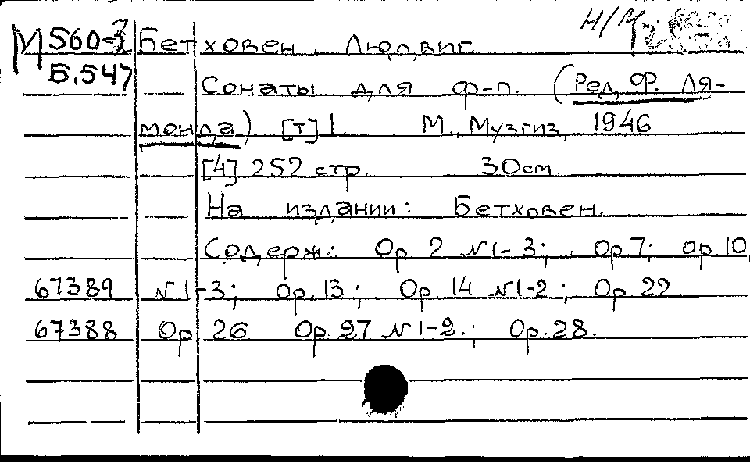 Н/М
М 560-3 Бетховен, Людвиг
Б.547 Сонаты для ф-п. (Ред. Ф. Ля-
монда) [т] 1 М., Музгиз, 1946
[4] 252 стр. 30см
На издании: Бетховен.
Содерж.: Op 2 №1-3; Op 7; op 10,
67389 №1-3; Op. 13; Op. 14 №1-2; Op. 22
67388 Op 26 Op. 27 №1-2.; Op. 28.